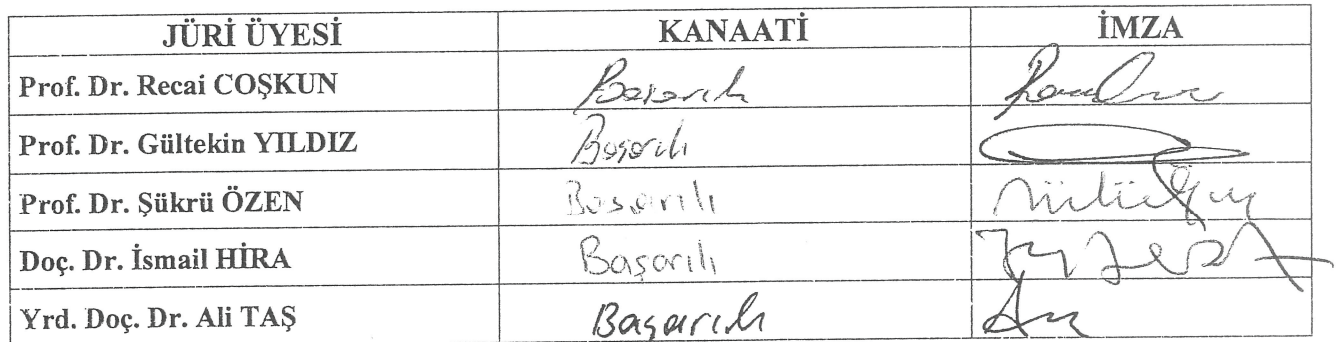 JÜRİ ÜYESİ KANAATİ İMZA
Prof. Dr. Recai COŞKUN Başarılı
Prof. Dr. Gültekin YILDIZ Başarılı
Prof. Dr. Şükrü ÖZEN Başarılı
Doç. Dr. İsmail HİRA Başarılı
Yrd. Doç. Dr. Ali TAŞ Başarılı